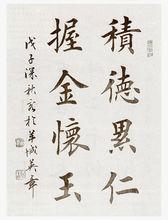 積德累仁
握金懷玉
戊子深秋客於羊城